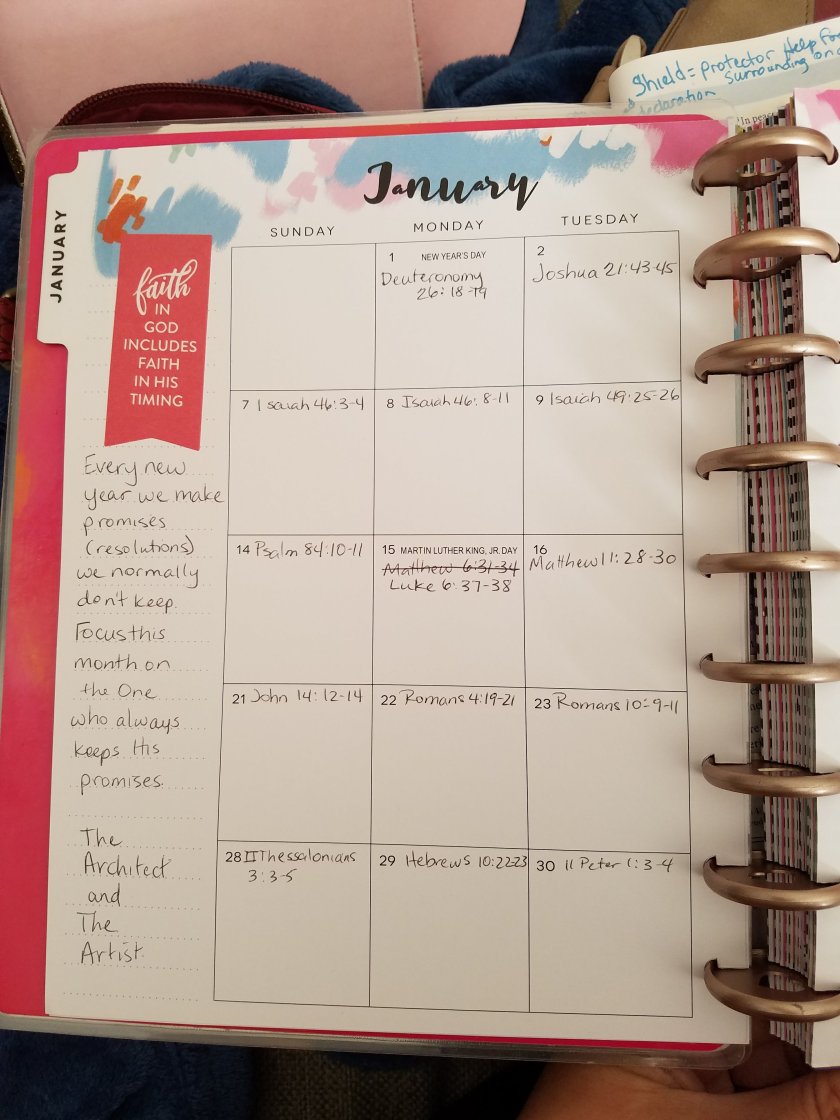 Shield = protector Help
surrounding
declaration
"In
January
JANUARY
SUNDAY MONDAY TUESDAY
faith
IN
GOD
INCLUDES
FAITH
IN HIS
TIMING
1 NEW YEAR'S DAY
Deuteronomy
26:18-19
2
Joshua 21:43-45
7 Isaiah 46:3-4
8 Isaiah 46:8-11
9 Isaiah 49:25-26
14 Psalm 84:10-11
15 MARTIN LUTHER KING, JR. DAY
Matthew 6:31-34
Luke 6:37-38
16
Matthew 11:28-30
21 John 14:12-14
22 Romans 4:19-21
23 Romans 10:9-11
28 II Thessalonians
3:3-5
29 Hebrews 10:22-23
30 II Peter 1:3-4
Every new
year we make
promises
(resolutions)
we normally
don't keep.
Focus this
month on
the One
who always
keeps His
promises.
The
Architect
and
The
Artist.